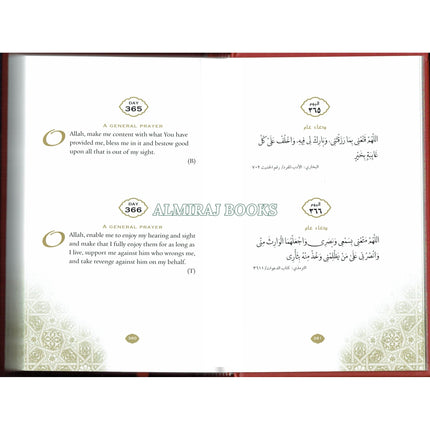 DAY
365
A GENERAL PRAYER
O Allah, make me content with what You have
provided me, bless me in it and bestow good
upon all that is out of my sight.
(B)
DAY
366
A GENERAL PRAYER
O Allah, enable me to enjoy my hearing and sight
and make that I fully enjoy them for as long as
I live, support me against him who wrongs me,
and take revenge against him on my behalf.
(T)
ALMIRAJ BOOKS
اليوم
٣٦٥
دعاء عام
اللَّهُمَّ قَنِّعْنِي بِمَا رَزَقْتَنِي، وَبَارِكْ لِي فِيهِ، وَاخْلُفْ عَلَى كُلِّ
غَائِبَةٍ بِخَيْرٍ
البخاري: الأدب المفرد/ رقم الحديث
اليوم
٣٦٦
دعاء عام
اللَّهُمَّ مَتِّعْنِي بِسَمْعِي وَبَصَرِي، وَاجْعَلْهُمَا الْوَارِثَ مِنِّي
وَانْصُرْنِي عَلَى مَنْ يَظْلِمُنِي وَخُذْ مِنْهُ بِثَأْرِي
الترمذي: كتاب الدعوات/ ٣٦١١